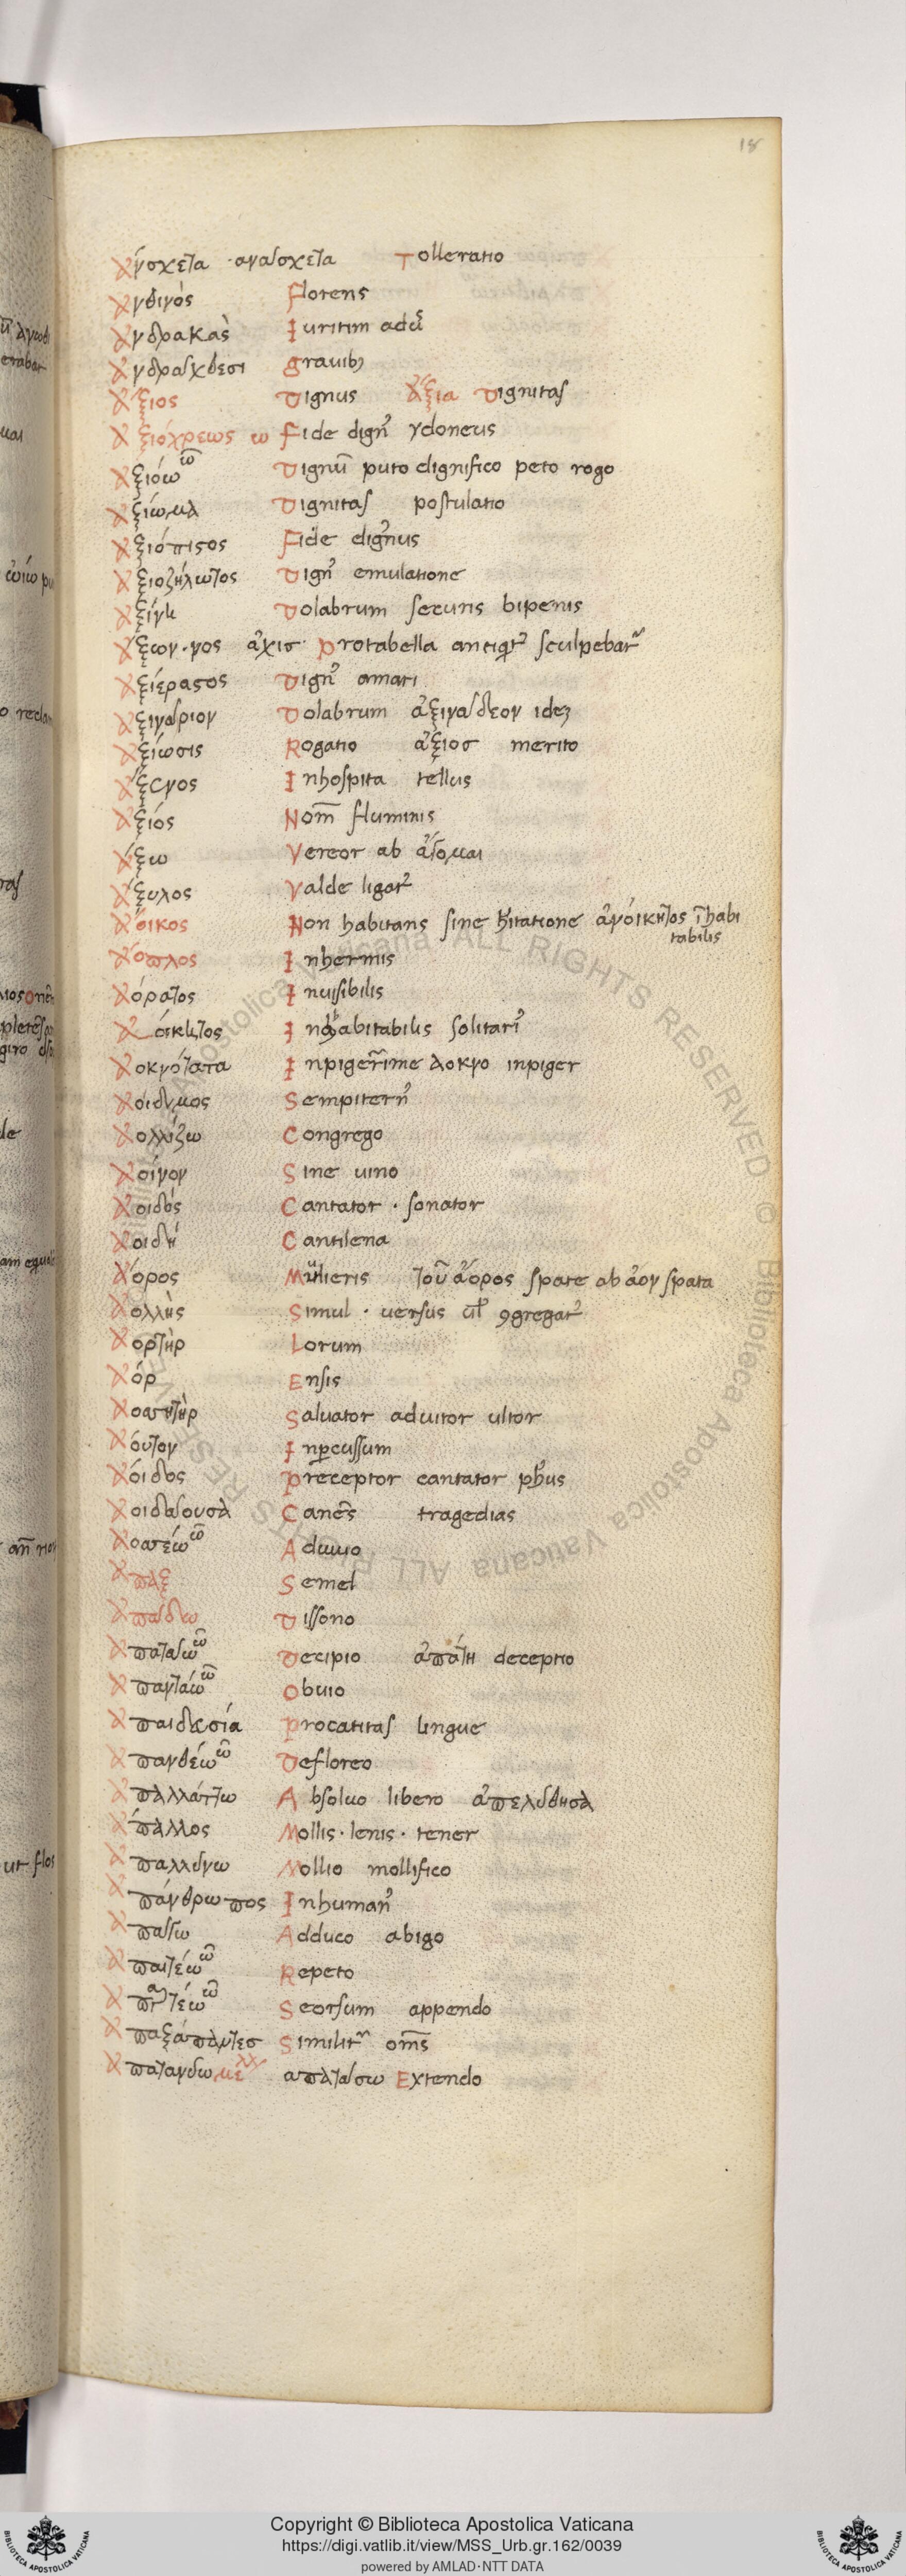 18
Ἀνσχετα · ανασχετα Tolleratio
Ἀνθινὸς Florens
Ἀνδρακὰς Iuritim
Ἀνδραχθεσι Grauibꝫ
Ἄξιος Dignus Ἀξια Dignitas
Ἀξιόχρεως ω Fide dignꝰ ydoneus
Ἀξιόω ῶ Dignū puto dignifico peto rogo
Ἀξίωμα Dignitas postulatio
Ἀξιόπιϛος Fide dignus
Ἀξιοζήλωτος Dignꝰ emulatione
Ἀξίνη Dolabrum securis bipenis
Ἄξων · νος Protabella sculpebat᷑
Ἀξιέραϛος Dignꝰ amari
Ἀξινάριον Dolabrum ideꝫ
Ἀξίωσις Rogatio ἄξιοσ merito
Ἄξενος Inhospita tellus
Ἀξιός Nom̄ fluminis
Ἄξω Vereor ab ἅζομαι
Ἄξυλος Valde
Ἄοικος Non habitans sine ἀνοίκητος ī habi
tabilis
Ἄοπλος Inhermis
Ἀόρατος Inuisibilis
Ἀοίκητος solitariꝰ
Ἀοκνότατα αοκνο inpiger
Ἀοιδιμος Sempiternꝰ
Ἀολλίζω Congrego
Ἀοίνον Sine uino
Ἀοιδός Cantator · sonator
Ἀοιδή Cantilena
Ἄορος Mulieris τοῦ ἄορος spate ab ἀον spata
Ἀολλὴς Simul · uersus ul̄ ꝯgregatꝰ
Ἀορτὴρ Lorum
Ἀόρ Ensis
Ἀοσητὴρ Saluator adiutor ultor
Ἀούτον Inꝑcussum
Ἀόιδος Preceptor cantator
Ἀοιδιάουσὰ Canēs tragedias
Ἀοσέω ῶ Adiuuo
Ἁπὰξ Semel
Ἀπάδω Dissono
Ἀπατάω ῶ Decipio ἀπάτη deceptio
Ἀπαντάω ῶ Obuio
Ἀπαιδεσία Procatitas lingue
Ἀπανθέω ῶ Defloreo
Ἀπαλλάττω Absoluo libero
Ἀπαλλος Mollis · lenis · tener
Ἀπαλλύνω Mollio mollifico
Ἀπάνθρωπος Inhumanꝰ
Ἀπάγω Adduco abigo
Ἀπαιτέω ῶ Repeto
Seorsum appendo
Ἀπαξάπαντεσ om̄s
Extendo
Copyright © Biblioteca Apostolica Vaticana
https://digi.vatlib.it/view/MSS_Urb.gr.162/0039
powered by AMLAD·NTT DATA